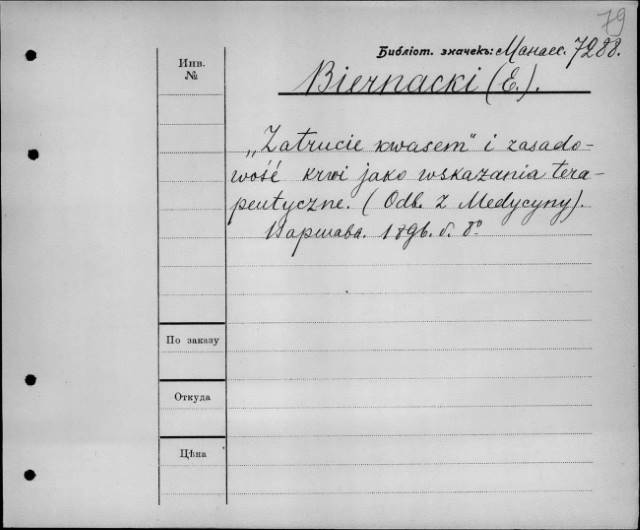 79
Библіот. значекъ: Манасс. 7288.
Инв.
№
Biernacki (E.).
„Zatrucie kwasem" i zasado-
wość krwi jako wskazania tera-
peutyczne. (Odb. z Medycyny).
Варшава. 1896. б. 8º
По заказу
Откуда
Цѣна